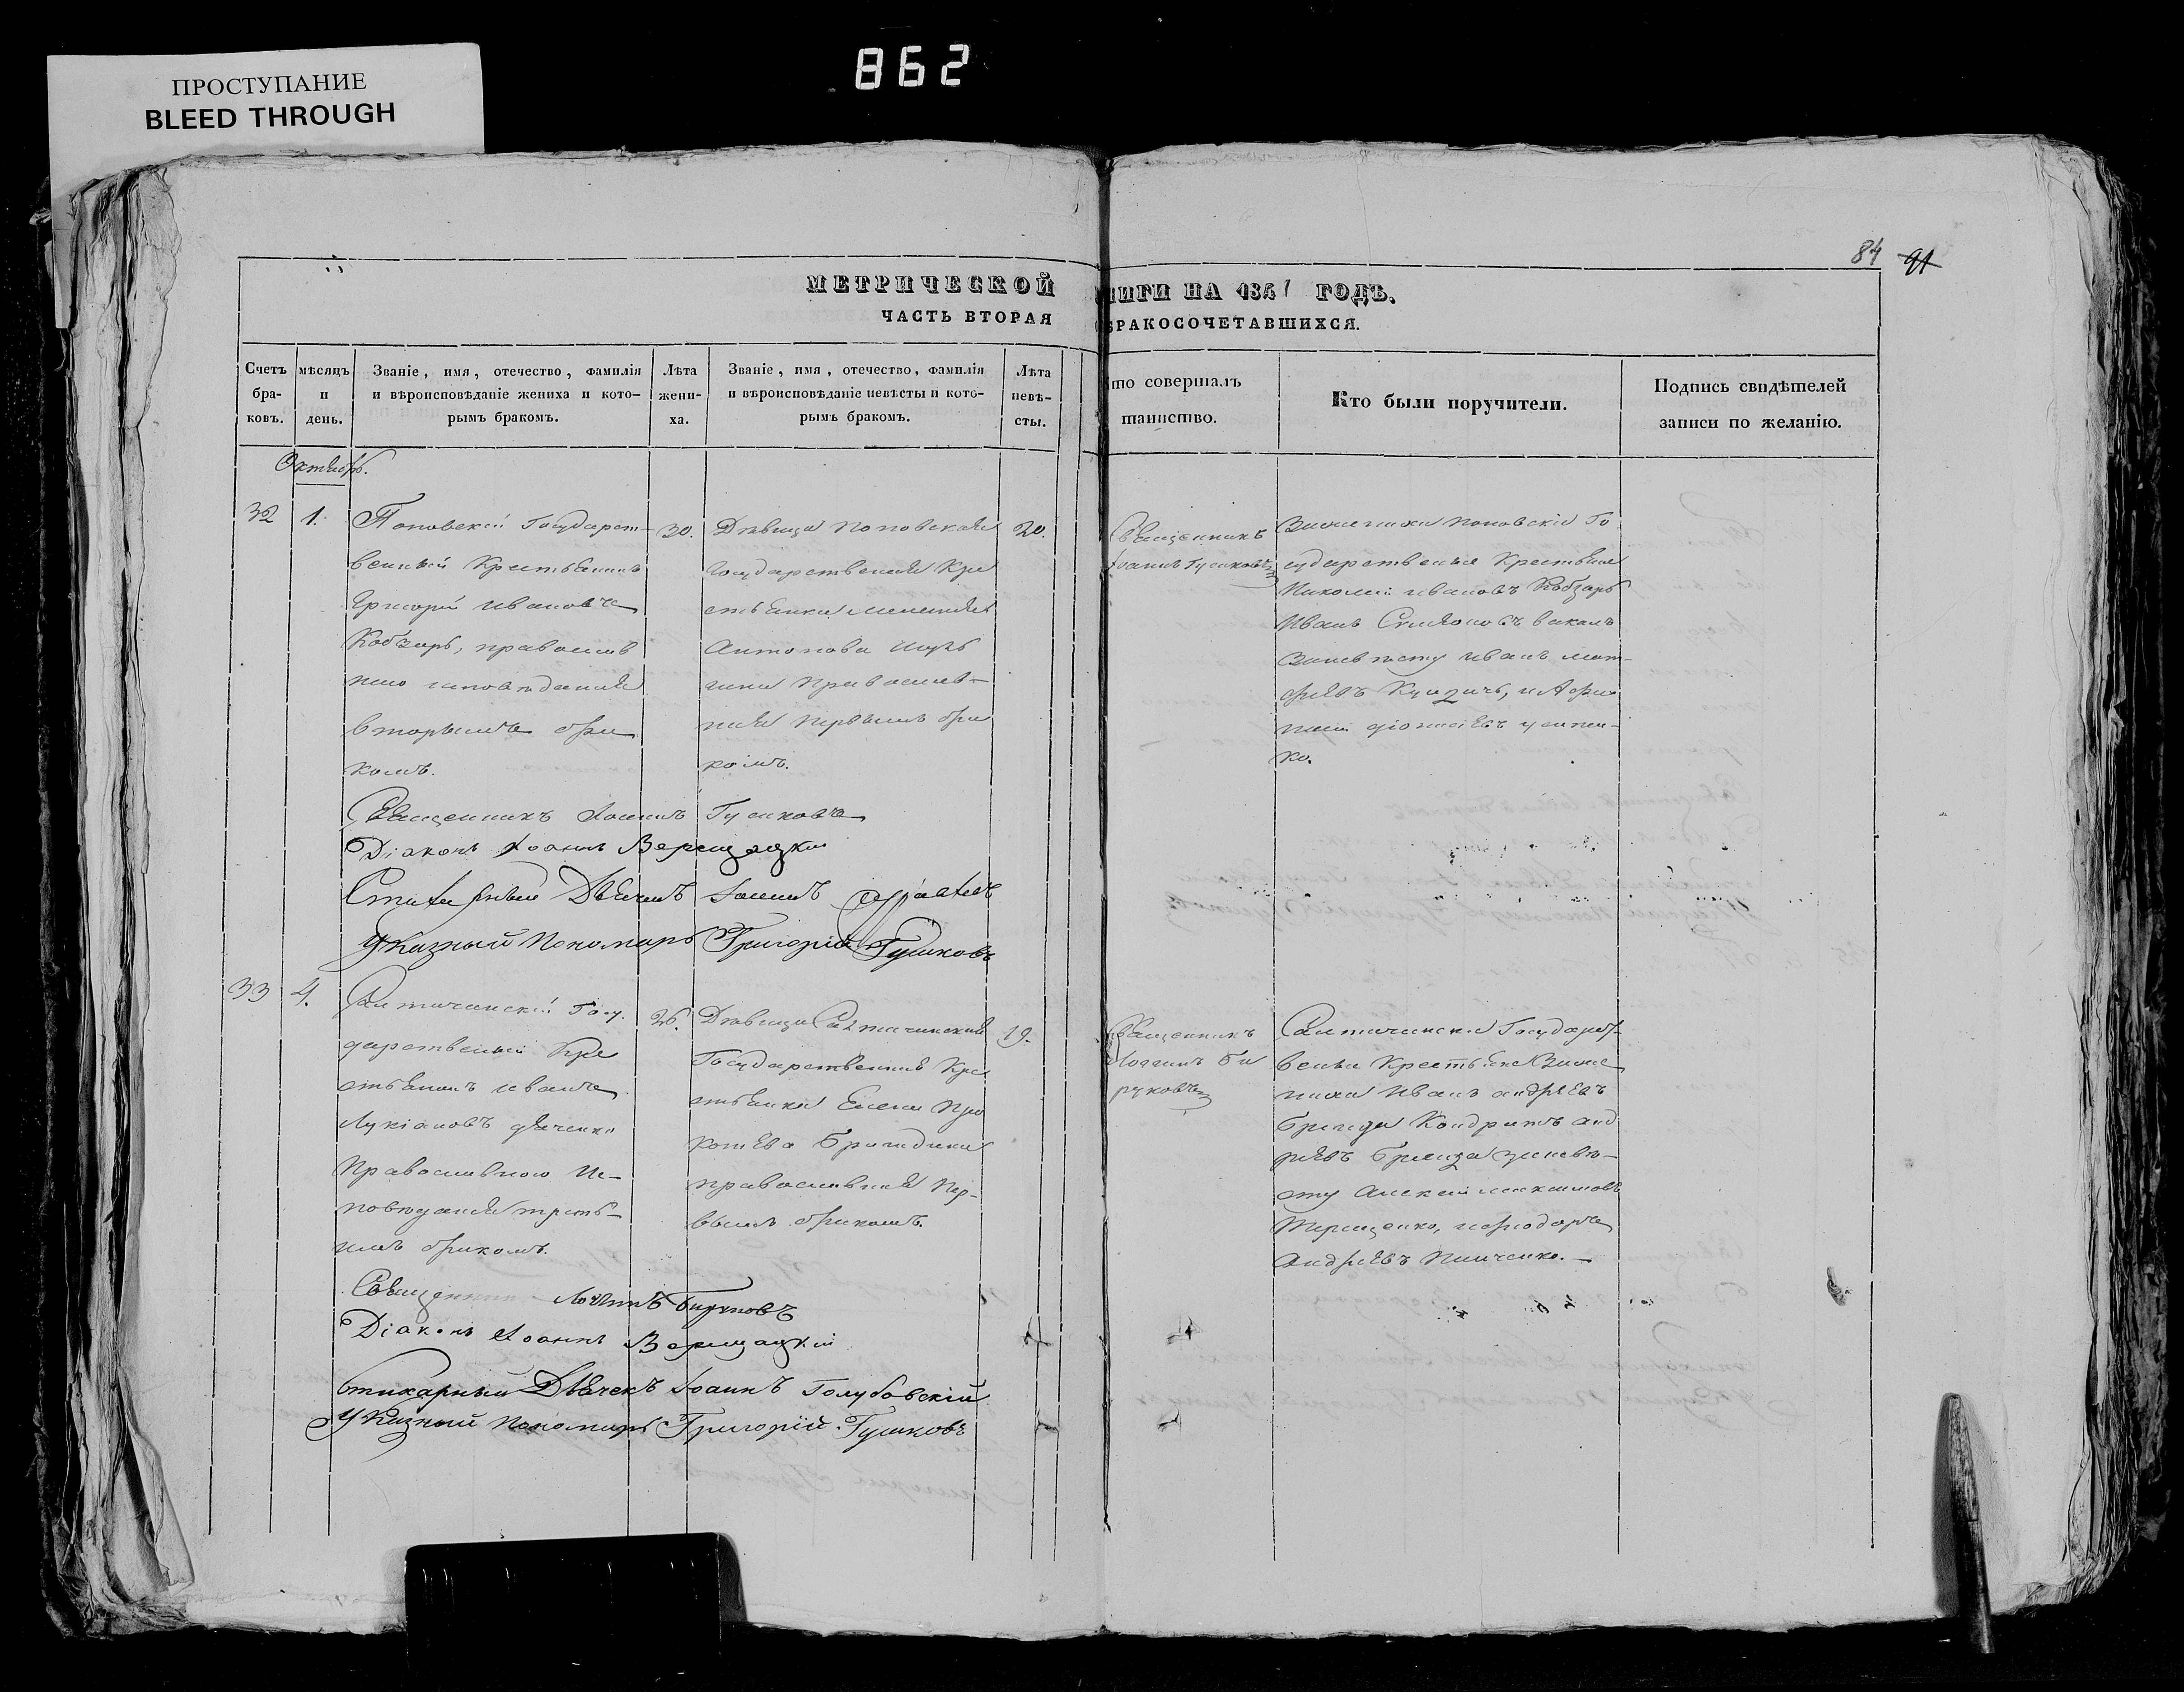 862
ПРОСТУПАНИЕ
BLEED THROUGH
84 91
МЕТРИЧЕСКОЙ
ЧАСТЬ ВТОРАЯ
Счетъ бра-ковъ.
мѣсяцъ и день.
Званіе, имя, отечество, фамилія и вѣроисповѣданіе жениха и кото-рымъ бракомъ.
Лѣта жени-ха.
Званіе, имя, отечество, фамилія и вѣроисповѣданіе невѣсты и кото-рымъ бракомъ.
Лѣта невѣ-сты.
НИГИ НА 1841 ГОДЪ.
БРАКОСОЧЕТАВШИХСЯ.
то совершалъ таинство.
Кто были поручители.
Подпись свидѣтелей записи по желанію.
Октябрь.
32
1.
Поповскій Государст-
венный Крестьянинъ
Григорій Ивановъ
Кобзарь, православ
наго исповѣданія
вторымъ бра
комъ.
30.
Дѣвица Поповская
государственная Кре
стьянка
Антонова
Православ-
ная первымъ бра
комъ.
20.
Священникъ
Іоаннъ Гусиковъ
Зажениха поповскіе Го
сударственные Крестьяне
Николай ивановъ Кобзарь
Иванъ
Заневѣсту иванъ мат-
ко.
Священникъ Іоаннъ Гусиковъ
Діаконъ Іоаннъ Верещацкій
Стихарный Дьячекъ Іоаннъ
Указный Пономарь Григорій Гусиковъ
33
4.
Салтичанскій Госу-
дарственный Кре
стьянинъ иванъ
Лукіановъ дяченко
Православного Ис-
повѣданія треть-
имъ бракомъ.
26.
Дѣвица Салтичанская
Государственная Кре
стьянка Елена Про
копіева
православная пер-
вымъ бракомъ.
19.
Священникъ
Логинъ Би
руковъ
Салтичанскіе Государст-
венные Крестьяне Заже
ниха Иванъ андреевъ
Кондратъ анд
реевъ заневѣ-
сту Алексѣй максимовъ
Терещенко, иѳиодоръ
андреевъ
Священникъ Логинъ Бируковъ
Діаконъ Іоаннъ Верещацкій
Стихарный Дьячекъ Іоаннъ Голубовскій
Указный Пономарь Григорій Гусиковъ